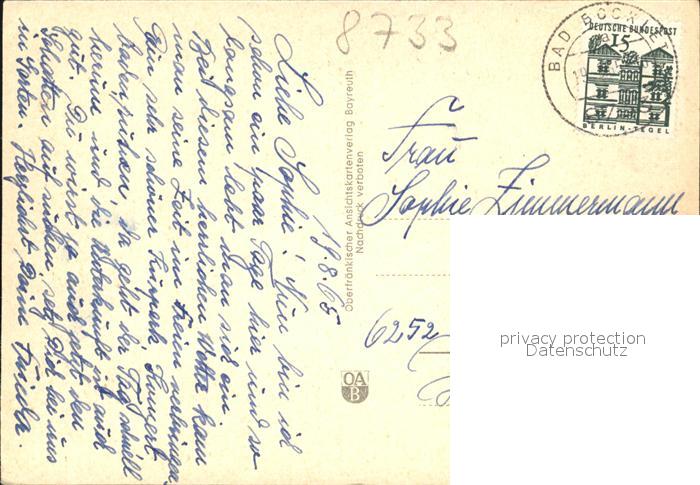 8733
BAD BOCKLET
DEUTSCHE BUNDESPOST
15
BERLIN-TEGEL
19.8.65
Liebe Sophie, Nun bin ich
schon ein paar Tage hier und so
langsam lebt man sich ein.
Bei diesem herrlichen Wetter kann
man seine Zeit im Freien verbringen.
Ein sehr schöner Kurpark, Konzert
baden, ruhen, da geht der Tag schnell
herum und die ist auch
gut. Du wirst ja auch jetzt den
Schatten aufsuchen, setz Dich bei uns
in Garten. Herzlichst Deine
Oberfränkischer Ansichtskartenverlag Bayreuth
Nachdruck verboten
OA
B
Frau
Sophie Zimmermann
6252
privacy protection
Datenschutz